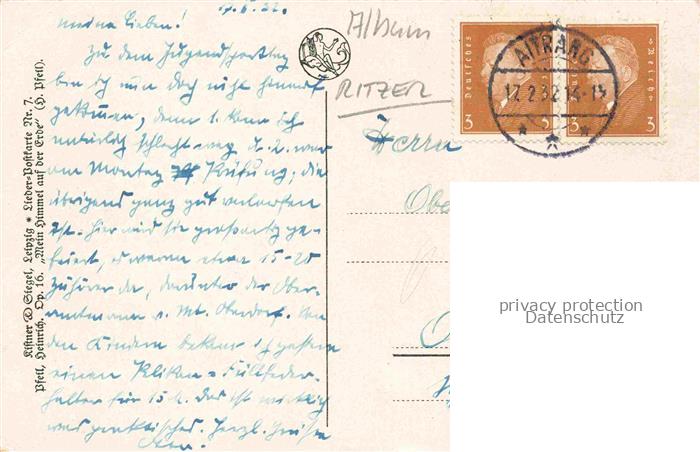 17.II.32.
meine Lieben!
Zu dem Jugendsporttag
bin ich nun doch nicht hinauf
gekommen, denn 1. kam ich
natürlich schlecht weg u. 2. war
am Montag Prüfung; die
übrigens ganz gut verlaufen
ist. Hier wird sie großartig ge-
feiert, es waren etwa 15-20
Zuhörer da, darunter der Ober-
amtmann v. Mt. Oberdorf. Von
den Kindern bekam ich gestern
einen Pelikan-Füllfeder-
halter für 15 M. Das ist wirklich
was praktisches. Herzl. Grüße
Kistner & Siegel, Leipzig * Lieder-Postkarte Nr. 7.
Pfeil, Heinrich, Op. 16. „Mein Himmel auf der Erde" (H. Pfeil).
Album
RITZER
Deutsches Reich
3 3
AITRANG
17.2.32.14-15
Herrn
Obe
privacy protection
Datenschutz